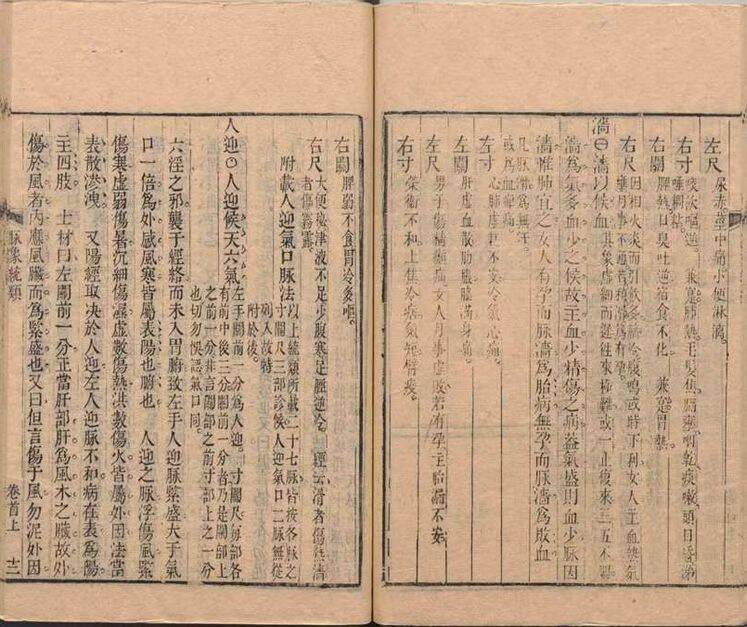 左尺
尿赤莖中痛小便淋漓
右寸
痰飲嘔逆 兼寬肺熱
右關
脾熱口臭吐逆宿食不化 兼寬胃熱
右尺
因相火炎而引飲多臍冷腹鳴或時下利女人主血熱氣
壅月事不通若和滑爲孕
濇曰濇以候血 其象虛細而遲往來極難或一止復來三五不調
濇爲氣多血少之候故主血少精傷之病葢氣盛則血少脉因
濇惟肺宜之女人有孕而脉濇爲胎病無孕而脉濇爲敗血
凡脉濇爲無汗
或爲血痺痛
左寸
心肺虛耗不安冷氣心痛
左關
肝虛血散肋脹脇滿身痛
左尺
男子傷精癩疝女人月事虛敗若有孕主胎漏不安
右寸
榮衛不和上焦冷痞氣短臂痠
右關
脾弱不食胃冷多嘔
右尺
大便秘津液不足少腹寒足脛逆冷 經云滑者傷熱濇
者傷霧露
附載人迎氣口脉法
以上統類所載二十七脉皆按各脉之
寸關尺三部診候人迎氣口二脉無從
則入故特
附於後
人迎○人迎候天六氣
左手關前一分爲人迎寸關尺每部各
有前中後三分關前一分者乃是關部上
之前一分非言關部之前寸部上之一分
也切勿悞認氣口同
六淫之邪襲于經絡而未入胃腑致左手人迎脉緊盛大于氣
口一倍爲外感風寒皆屬表陽也腑也 人迎之脉浮傷風緊
傷寒虛弱傷暑沉細傷濕虛數傷熱洪數傷火皆屬外因法當
表散滲洩 又陽經取決於人迎左人迎脉不和病在表爲陽
主四肢 士材曰左關前一分正當肝部肝爲風木之臟故外
傷於風者內應風臟而爲緊盛也又曰但言傷于風勿泥外因
脉象統類
卷首上
十二